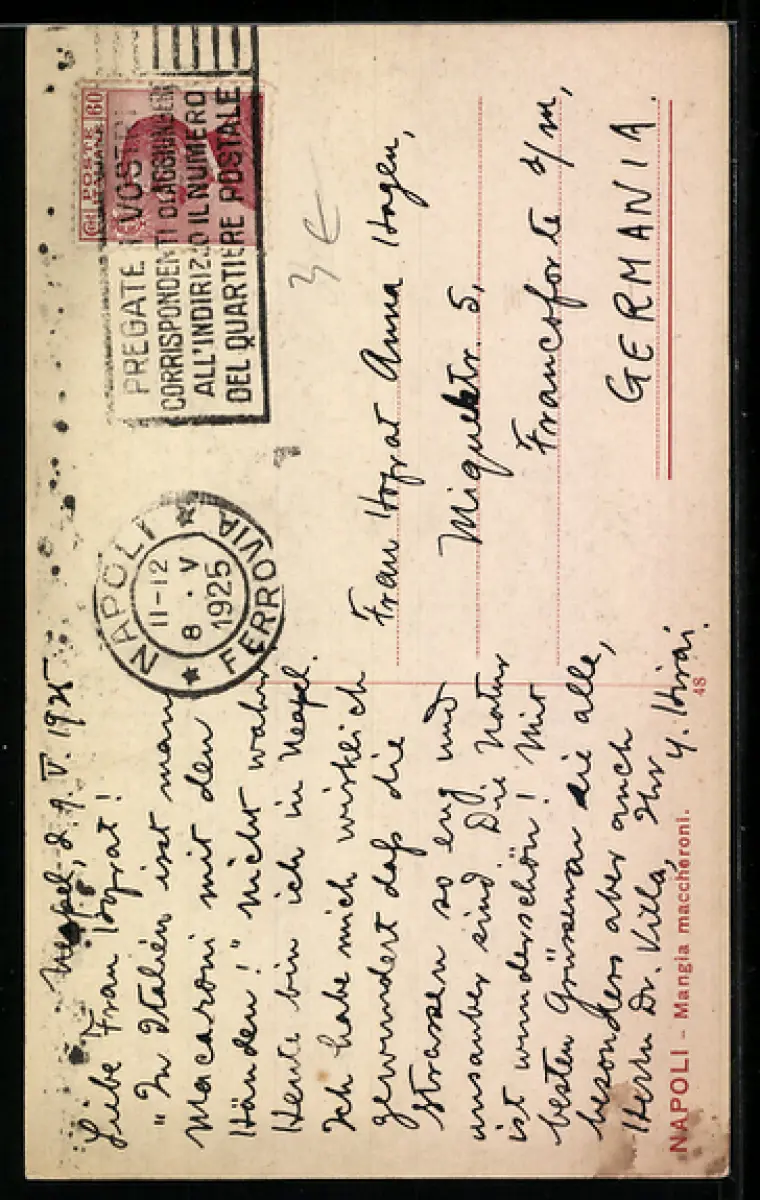 Neapel, d. 9. V. 1925
Liebe Frau Hofrat!
"In Italien isst man
Macaroni mit den
Händen!" Nicht wahr
Heute bin ich in Neapel.
Ich habe mich wirklich
gewundert daß die
Strassen so eng und
unsauber sind. Die Natur
ist wunderschön! Mit
besten Grüssen an sie alle,
besonders aber auch
Herrn Dr. Villa, Ihr Y. Hirai.
NAPOLI – Mangia maccheroni.
48
POSTE
ITALIANE
60
PREGATE I VOSTRI
CORRISPONDENTI DI AGGIUNGERE
ALL'INDIRIZZO IL NUMERO
DEL QUARTIERE POSTALE
NAPOLI
11-12
8 · V
1925
FERROVIA
3 €
Frau Hofrat Anna Hagen,
Miquelstr. 5,
Francoforte s/m,
GERMANIA.